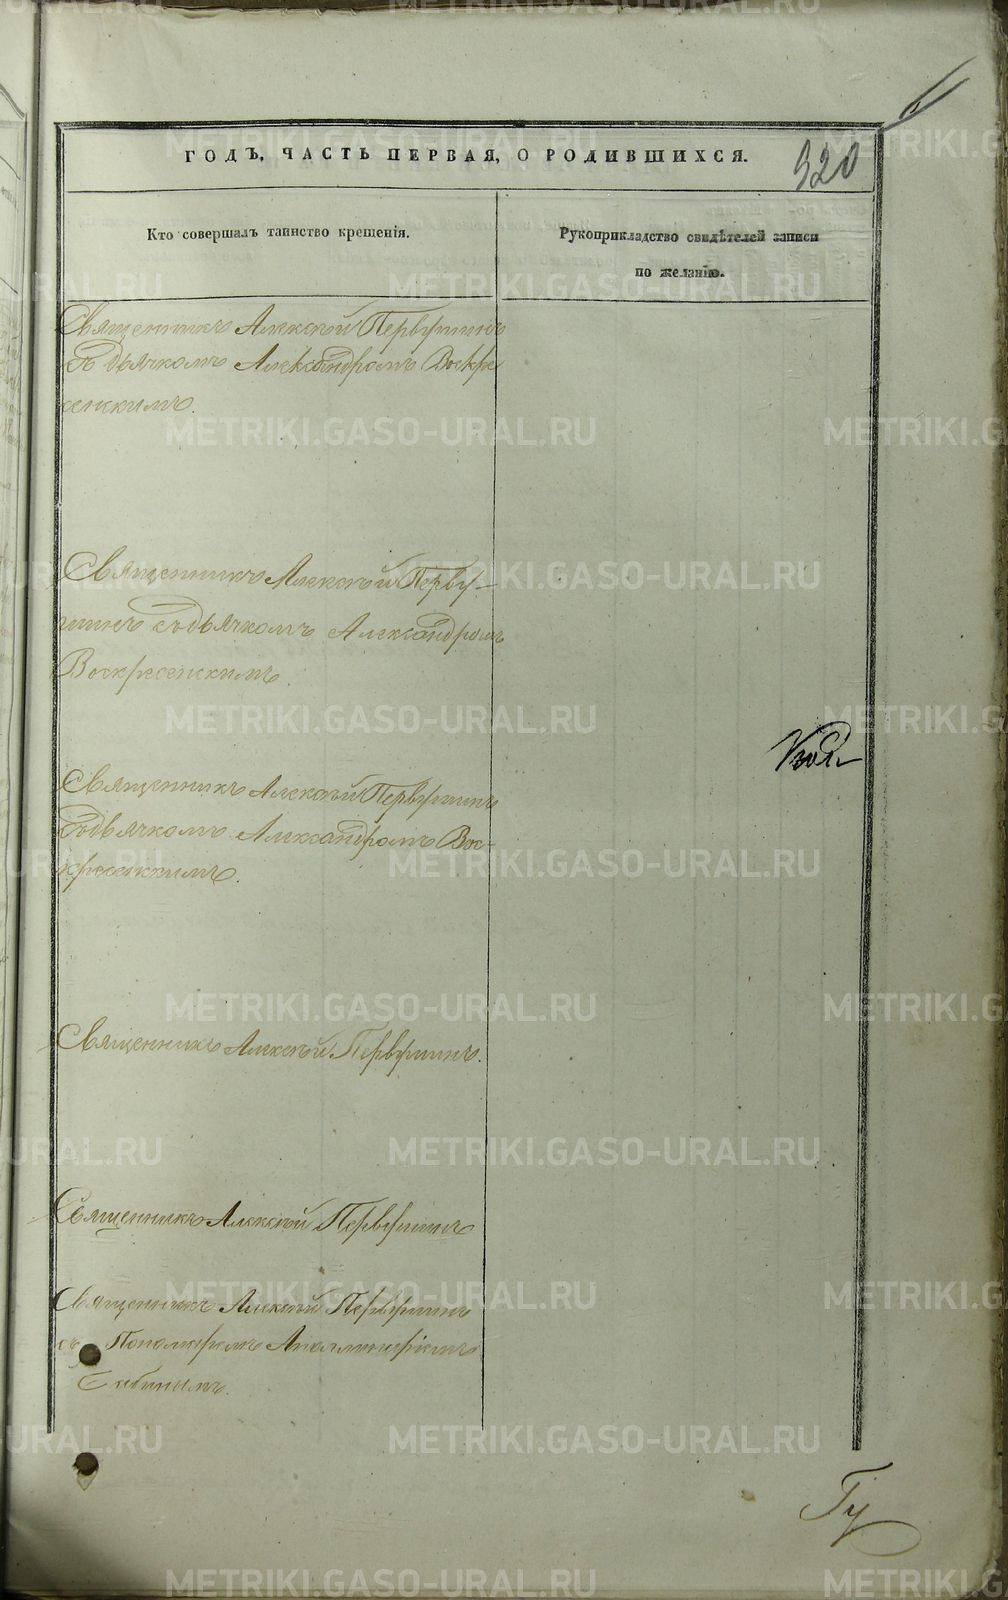 ГОДЪ, ЧАСТЬ ПЕРВАЯ, О РОДИВШИХСЯ.
320
Кто совершалъ таинство крещенія.
Рукоприкладство свидѣтелей записи
по желанію.
Священникъ Алексѣй Первушинъ
съ дьячкомъ Александромъ Воскре
сенскимъ.
Священникъ Алексѣй Перву-
шинъ съ дьячкомъ Александромъ
Воскресенскимъ.
Священникъ Алексѣй Первушинъ
съ дьячкомъ Александромъ Вос-
кресенскимъ.
Священникъ Алексѣй Первушинъ.
Священникъ Алексѣй Первушинъ
Священникъ Алексѣй Первушинъ
съ Пономаремъ Аполлинаріемъ
METRIKI.GASO-URAL.RU